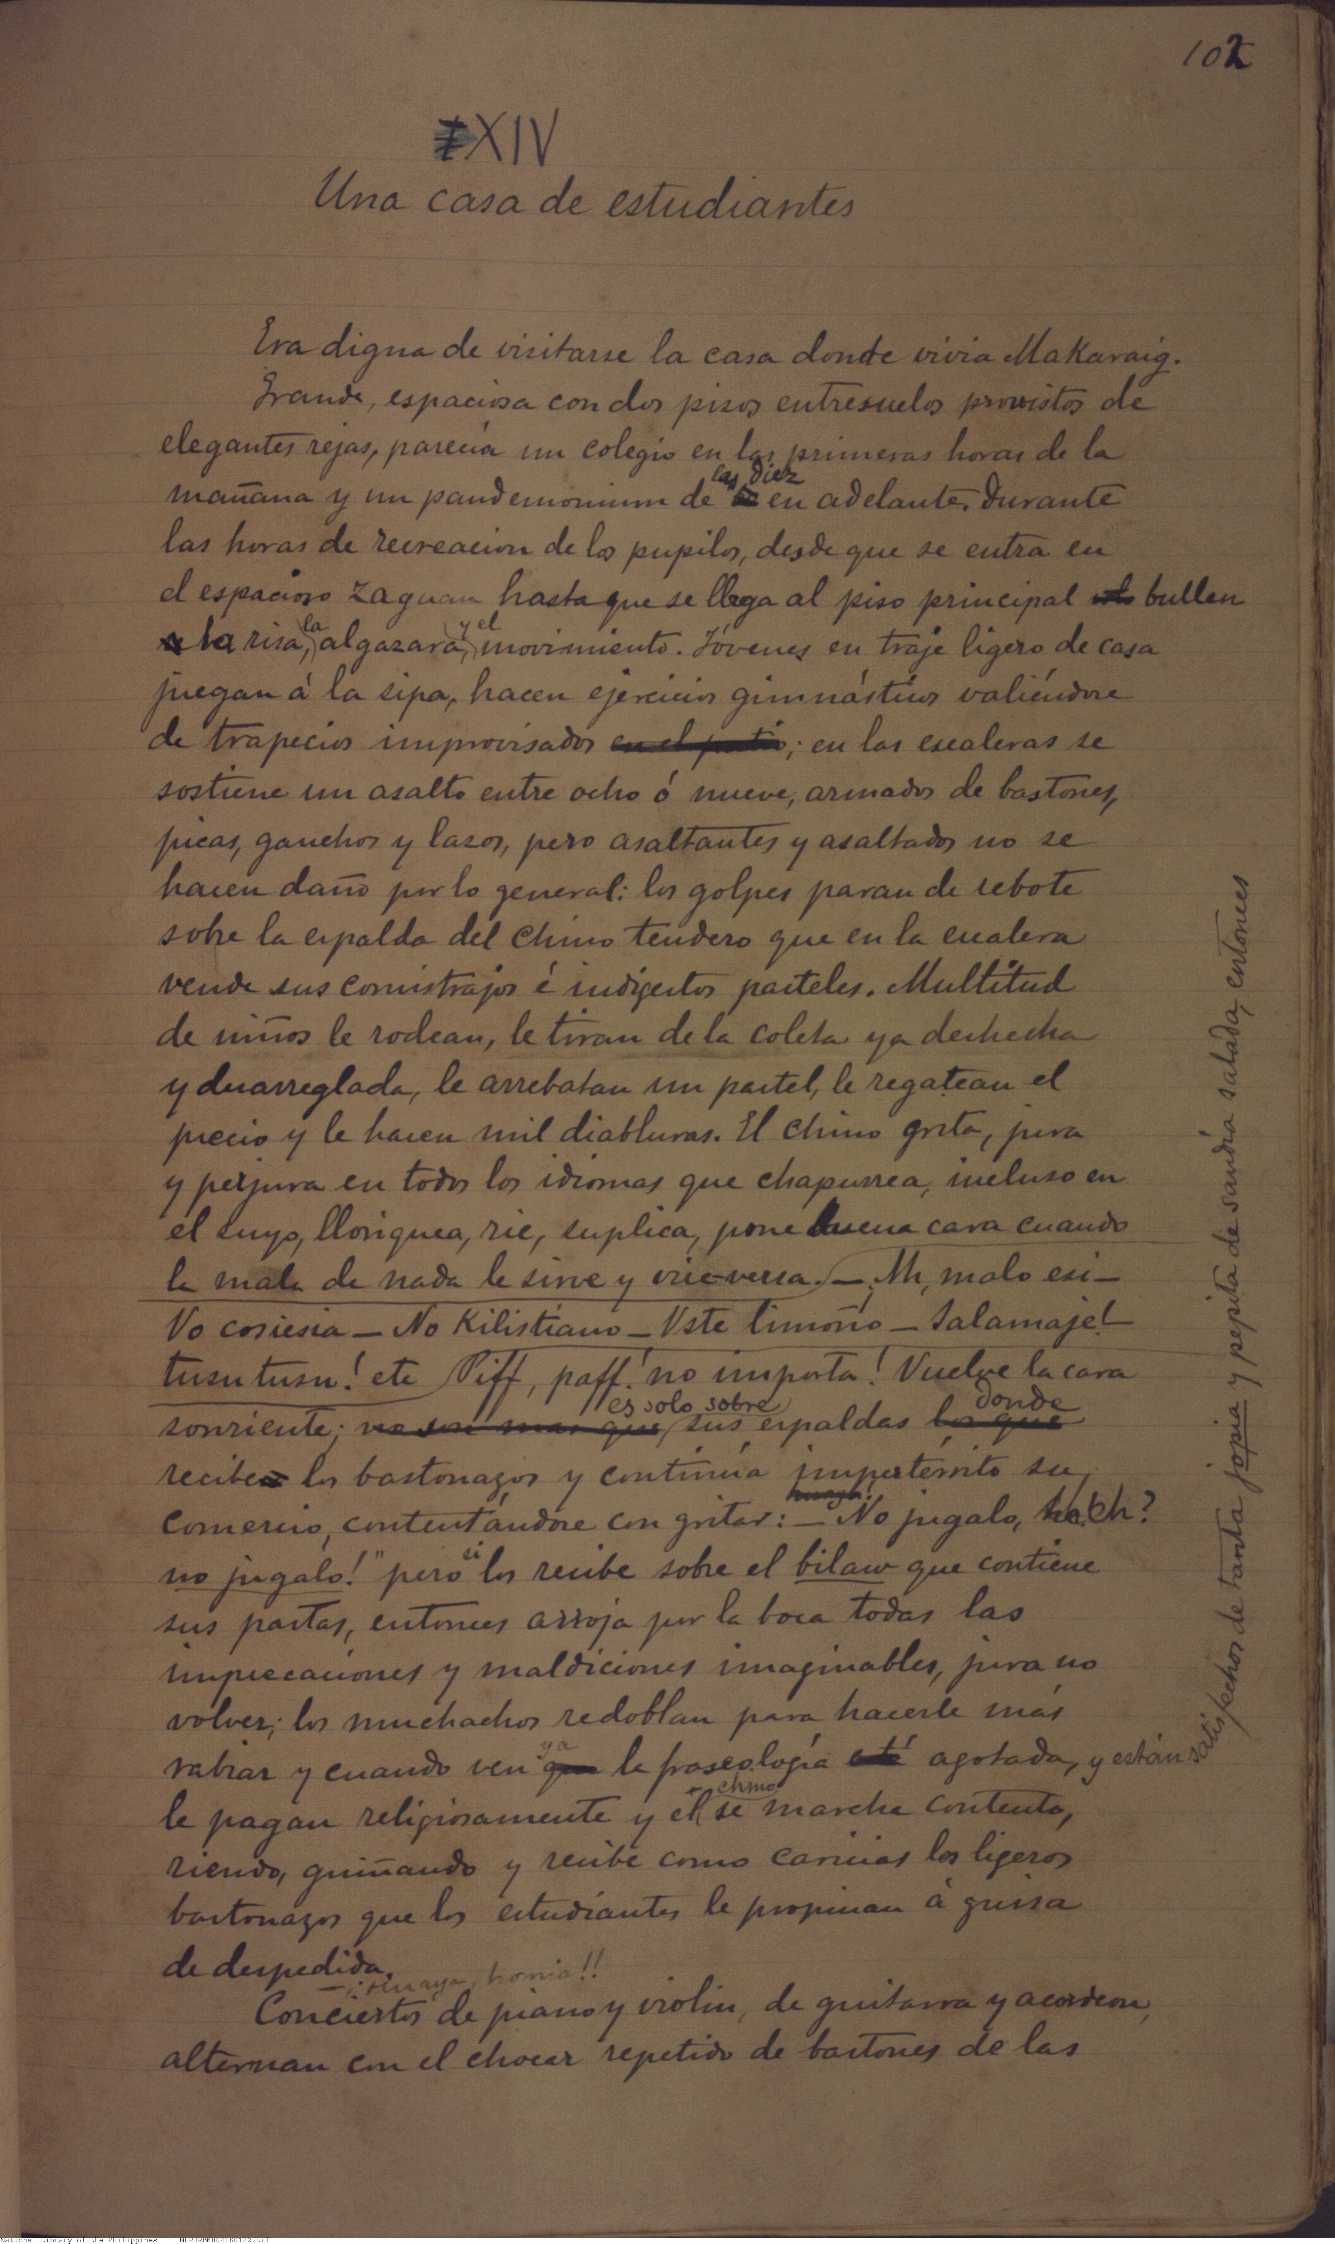 102
XIV
Una casa de estudiantes
Era digna de visitarse la casa donde vivia Makaraig.
Grande, espaciosa con dos pisos entresuelos provistos de
elegantes rejas, parecía un colegio en las primeras horas de la
las diez
mañana y un pandemonium de en adelante. Durante
las horas de recreacion de los pupilos, desde que se entra en
el espacioso zaguan hasta que se llega al piso principal bullen
la risa, la algazara, y el movimiento. Jóvenes en traje ligero de casa
juegan á la sipa, hacen ejercicios gimnásticos valiéndose
de trapecios improvisados en el patio; en las escaleras se
sostiene un asalto entre ocho ó nueve, armados de bastones,
picas, ganchos y lazos, pero asaltantes y asaltados no se
hacen daño por lo general: los golpes paran de rebote
sobre la espalda del chino tendero que en la escalera
vende sus comistrajos é indigestos pasteles. Multitud
de niños le rodean, le tiran de la coleta ya deshecha
y desarreglada, le arrebatan un pastel, le regatean el
precio y le hacen mil diabluras. El chino grita, jura
y perjura en todos los idiomas que chapurrea, incluso en
el suyo, lloriquea, rie, suplica, pone buena cara cuando
la mala de nada le sirve y vice-versa. — Ah, malo esi —
Vo cosiesia — No kilistiano — Uste limoño — Salamaje! —
tusu tusu! etc Piff, paff! no importa! Vuelve la cara
es solo sobre donde
sonriente; no son mas que sus espaldas los que
recibe los bastonazos y continúa impertérrito su
comercio, contentándose con gritar: — No jugalo, eh?
no jugalo!" pero si los recibe sobre el bilaw que contiene
sus pastas, entonces arroja por la boca todas las
imprecaciones y maldiciones imaginables, jura no
volver; los muchachos redoblan para hacerle más
ya
rabiar y cuando ven que la fraseología está agotada, y están satisfechos de tanta jopia y pepita de sandía salada, entonces
chino
le pagan religiosamente y el se marcha contento,
riendo, guiñando y recibe como caricias los ligeros
bastonazos que los estudiantes le propinan á guisa
de despedida.
— Huaya, homia!!
Conciertos de piano y violin, de guitarra y acordeon,
alternan con el chocar repetido de bastones de las